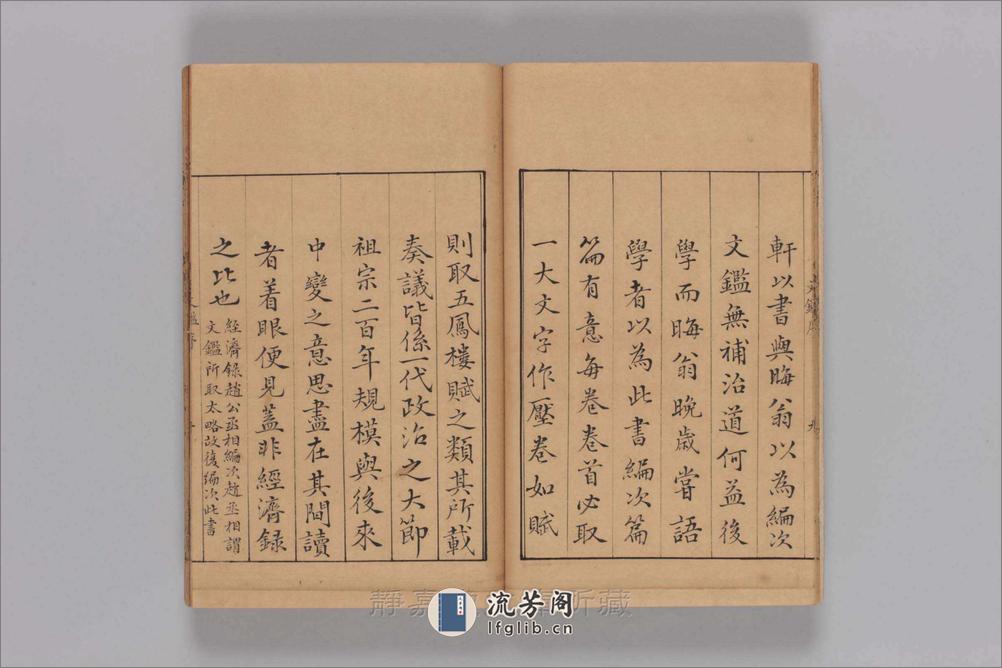 軒以書與晦翁以為編次
文鑑無補治道何益後
學而晦翁晚歲嘗語
學者以為此書編次篇
篇有意每卷卷首必取
一大文字作壓卷如賦
則取五鳳樓賦之類其所載
奏議皆係一代政治之大節
祖宗二百年規模與後來
中變之意思盡在其間讀
者着眼便見蓋非經濟録
之比也
經濟録趙公丞相編次趙丞相謂
文鑑所取太略故復編次此書
流芳阁
lfglib.cn